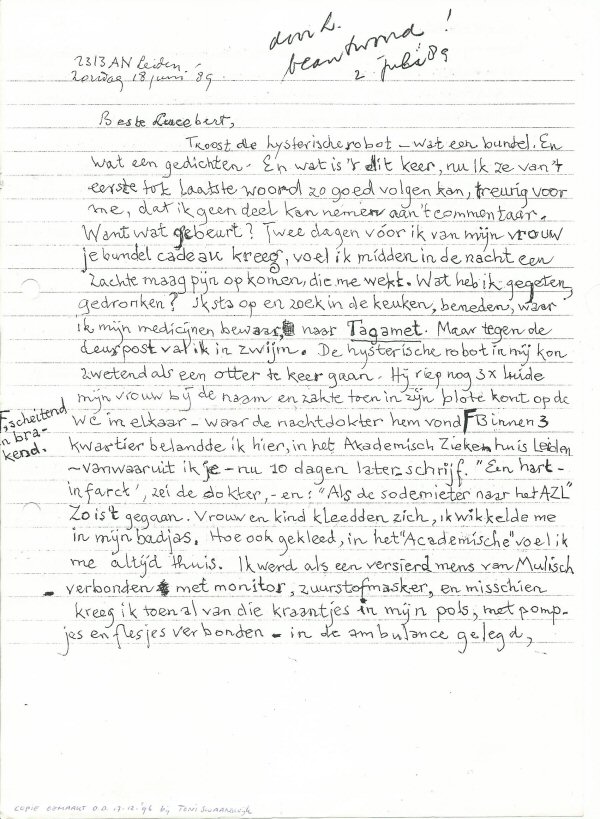 door L.
beantwoord!
2 juli '89
2313 AN Leiden
zondag 18 juni '89
Beste Lucebert,
Troost de hysterische robot – wat een bundel. En
wat een gedichten. En wat is 't dit keer, nu ik ze van 't
eerste tot laatste woord zo goed volgen kan, treurig voor
me, dat ik geen deel kan nemen aan 't commentaar.
Want wat gebeurt? Twee dagen vóór ik van mijn vrouw
je bundel cadeau kreeg, voel ik midden in de nacht een
zachte maagpijn opkomen, die me wekt. Wat heb ik gegeten,
gedronken? Ik sta op en zoek in de keuken, beneden, waar
ik mijn medicijnen bewaar, naar Tagamet. Maar tegen de
deurpost val ik in zwijm. De hysterische robot in mij kon
zwetend als een otter te keer gaan. Hij riep nog 3x luide
mijn vrouw bij de naam en zakte toen in zijn blote kont op de
WC in elkaar – waar de nachtdokter hem vond F Binnen 3
F, scheitend
en bra-
kend.
kwartier belandde ik hier, in het Akademisch Ziekenhuis Leiden
– vanwaaruit ik je – nu 10 dagen later – schrijf. "Een hart-
infarct', zei de dokter, - en: "Als de sodemieter naar het AZL"
Zo is 't gegaan. Vrouw en kind kleedden zich, ik wikkelde me
in mijn badjas. Hoe ook gekleed, in het "Academische" voel ik
me altijd thuis. Ik werd als een versierd mens van Mulisch
verbonden met monitor, zuurstofmasker, en misschien
kreeg ik toen al van die kraantjes in mijn pols, met pomp-
jes en flesjes verbonden – in de ambulance gelegd,
COPIE GEMAAKT D.D. 17-12-'96 bij TONI SWAANSWIJK